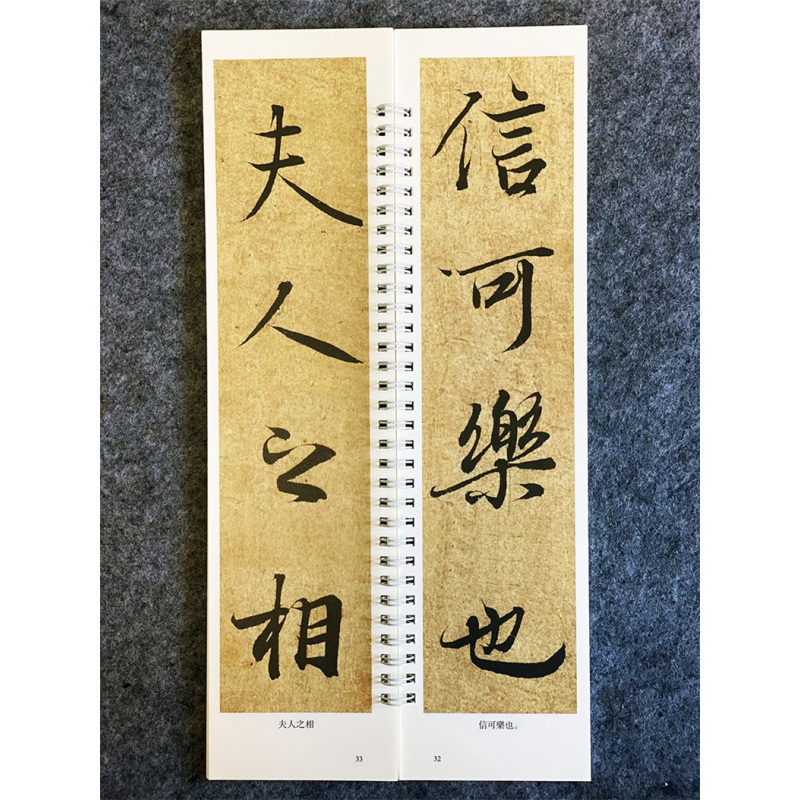 信可樂也
信可樂也。
32
夫人之相
夫人之相
33